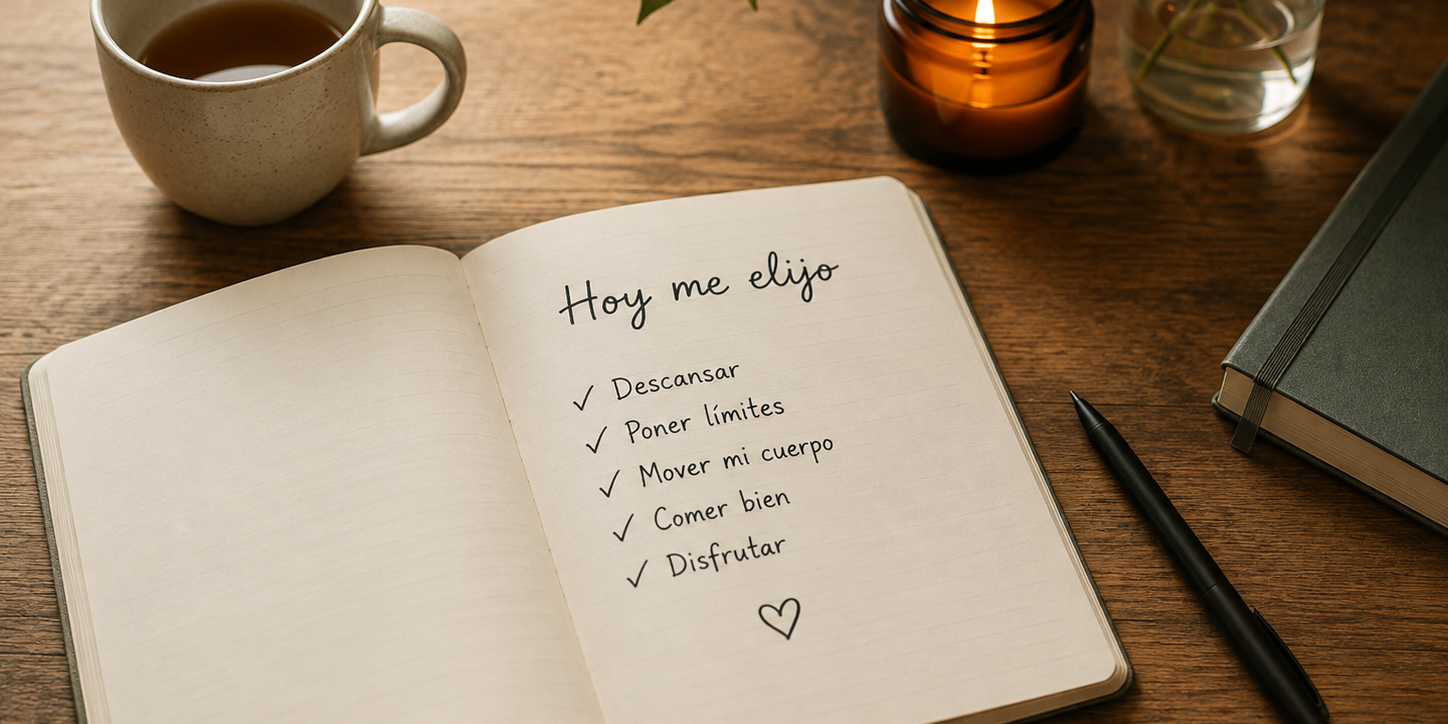 Hoy me elijo
✓ Descansar
✓ Poner límites
✓ Mover mi cuerpo
✓ Comer bien
✓ Disfrutar